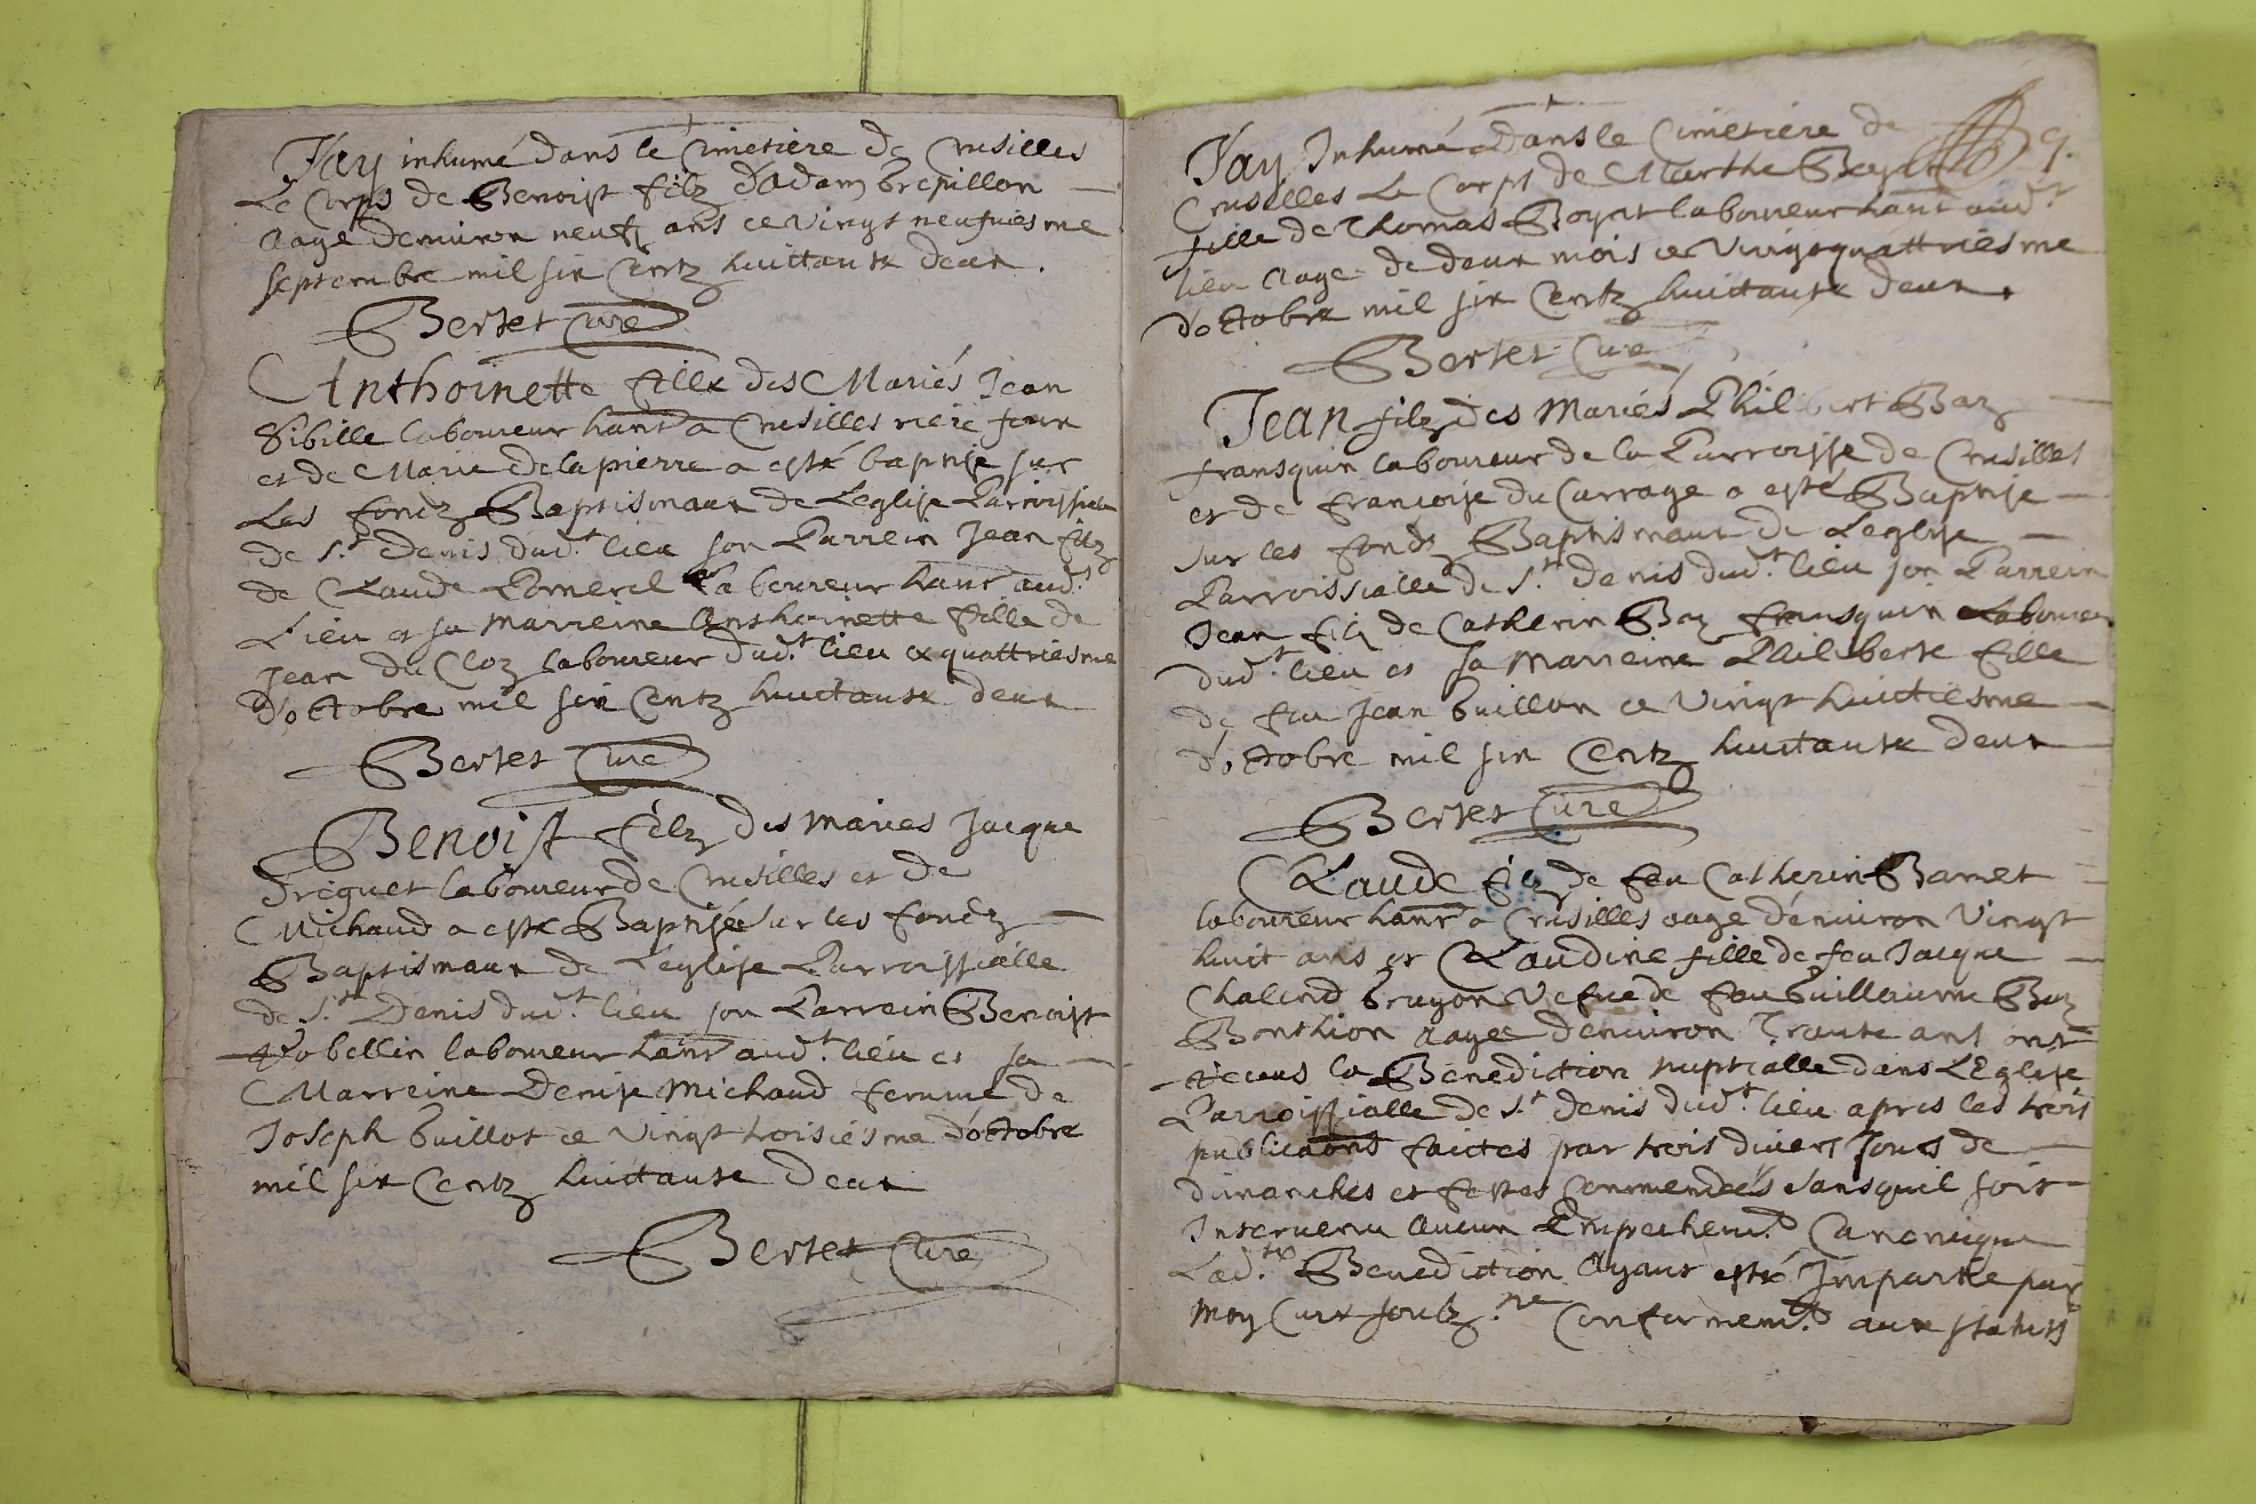 Jay inhumé dans le Cimetiere de Crusilles
Le Corps de Benoist filz d'Adam brepillon
aage denuiron neufz ans ce vingt neufuiesme
septembre mil six Centz huittante deux.
Bertet Curé
Anthoinette fille des Mariés Jean
Sibille laboureur hant a Crusilles riere Jour
et de Marie Delapierre a esté baptise sur
Les fondz Baptismaux de Leglise Parroissialle
de S.t Denis dud.t lieu son Parrein Jean filz
de Claude Pomerel Laboureur hant aud.t
Lieu et sa Marreine Anthoinette fille de
Jean du Cloz laboureur dud.t lieu ce quattriesme
d'octobre mil six Centz huittante deux
Bertet Curé
Benoist filz des Maries Jacque
Freguet laboureur de Crusilles et de
Michaud a esté Baptisé sur les fondz
Baptismaux de L'eglise Parroissialle
de S.t Denis dud.t lieu son Parrein Benoist
Robellin laboureur hant aud.t lieu et sa
Marreine Denise Michaud femme de
Joseph Guillot ce vingt troisiesme d'octobre
mil six Centz huittante deux
Bertet Curé
9.
Jay Inhumé Dans le Cimetiere de
Crusilles Le Corps de Marthe
fille de Thomas Boyat laboureur hant aud.t
lieu aage de deux mois ce vingtquattriesme
d'octobre mil six Centz huittante deux.
Bertet Curé
Jean filz des Mariés Philibert Baz
fransquin laboureur de la Parroisse de Crusilles
et de francoise du Carrage a esté Baptise
sur les fondz Baptismaux de Leglise
Parroissialle de S.t Denis dud.t lieu son Parrein
Jean filz de Catherin Baz fransquin Laboureur
dud.t lieu et sa Marreine Philiberte fille
de feu Jean Guillon ce vingt huictiesme
d'octobre mil six Centz huittante deux
Bertet Curé
Claude filz de feu Catherin Barnet
laboureur hant a Crusilles aage d'enuiron vingt
huit ans et Claudine fille de feu Jacque
Chaland bruyon vefue de feu Guillaume Baz
Bonthion aagee denuiron Trante ans ont
receus la Benediction nuptialle dans L'Eglise
Parroissialle de S.t Denis dud.t lieu apres les trois
publicaons faictes par trois diuers Jours de
dimanches et festes Commendées sans quil soit
Interuenu aucun Empechem.t Canonique
Lad.te Benediction Ayant esté Impartie par
moy Curé soubz.ne Conformem.t aux statuts